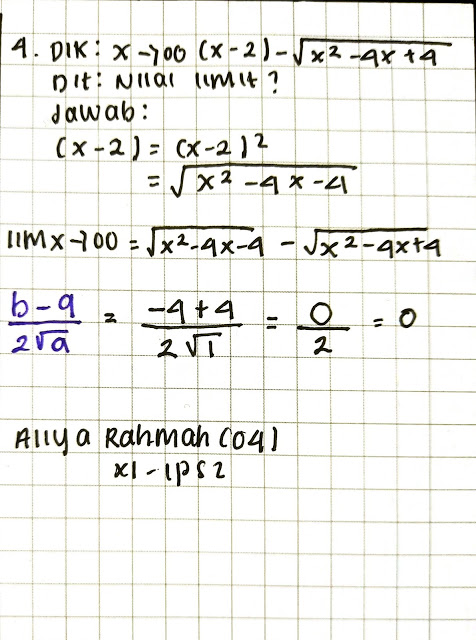 4. DIK: x→00 (x-2)-√x²-4x+4
Dit: Nilai limit?
Jawab:
(x-2) = (x-2)²
= √x²-4x-4
limx→00 = √x²-4x-4 - √x²-4x+4
b-q/2√a = -4+4/2√1 = 0/2 = 0
Aliya Rahmah (04)
XI-IPS2